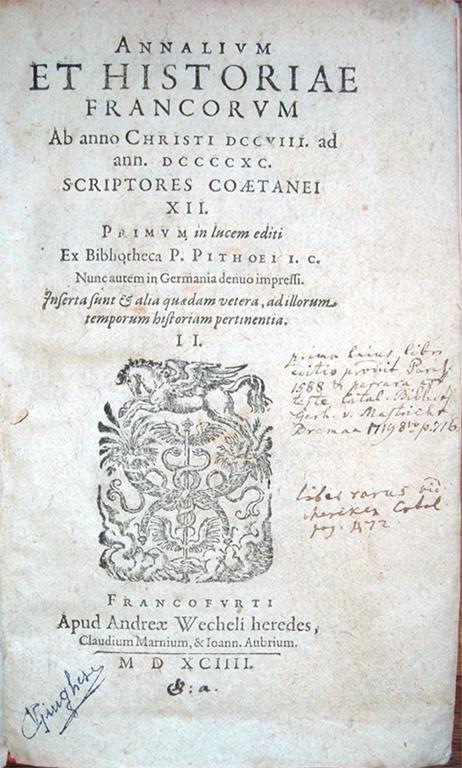 ANNALIVM
ET HISTORIAE
FRANCORVM
Ab anno CHRISTI DCCVIII. ad
ann. DCCCCXC.
SCRIPTORES COÆTANEI
XII.
PRIMVM in lucem editi
Ex Bibliotheca P. PITHOEI I. C.
Nunc autem in Germania denuo impressi.
Inserta sunt & alia quædam vetera, ad illorum
temporum historiam pertinentia.
II.
prima huius libri
editio prodiit Paris
1588 & perrara est
teste Catal. Biblioth
Gerh. v. Mastricht
Bremae 1719 8vo p. 716
liber rarus
pag. 472
FRANCOFVRTI
Apud Andreæ Wecheli heredes,
Claudium Marnium, & Ioann. Aubrium.
M D XCIIII.
&: a.